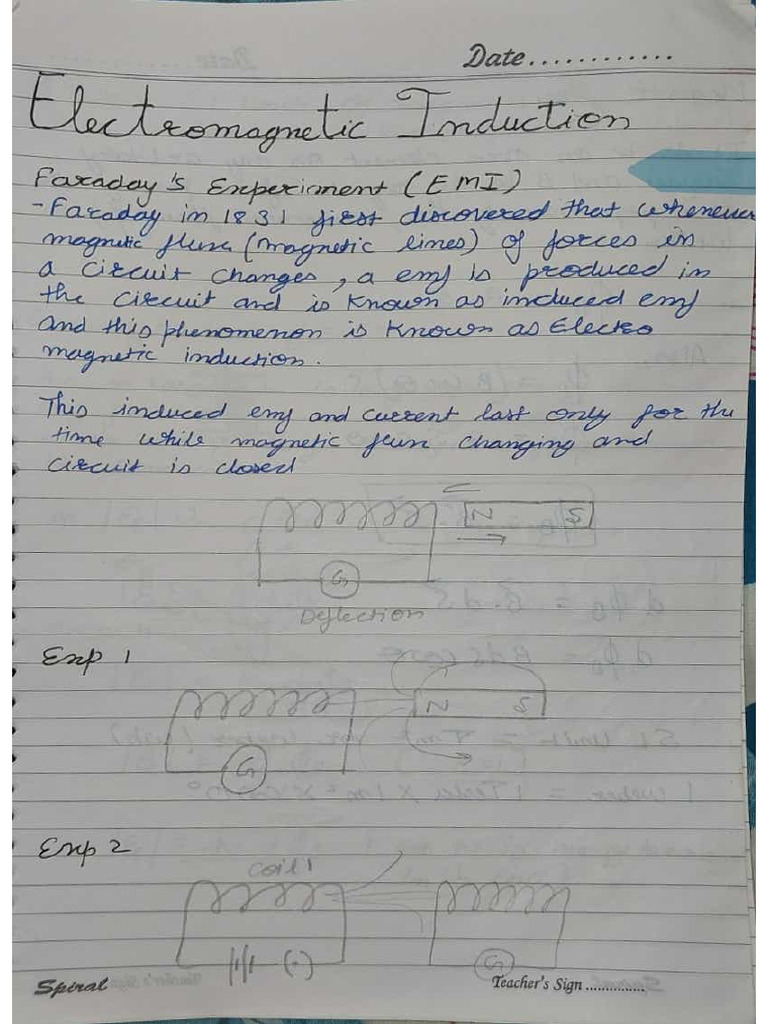 Date............
Electromagnetic Induction
Faraday's Experiment (EMI)
- Faraday in 1831 first discovered that whenever
magnetic flux (magnetic lines) of forces in
a circuit changes, a emf is produced in
the circuit and is known as induced emf
and this phenomenon is known as Electro
magnetic induction.
This induced emf and current last only for the
time while magnetic flux changing and
circuit is closed
N S
G
Deflection
Exp 1
N S
G
Exp 2
Coil 1
(·)
G
Spiral
Teacher's Sign ...............